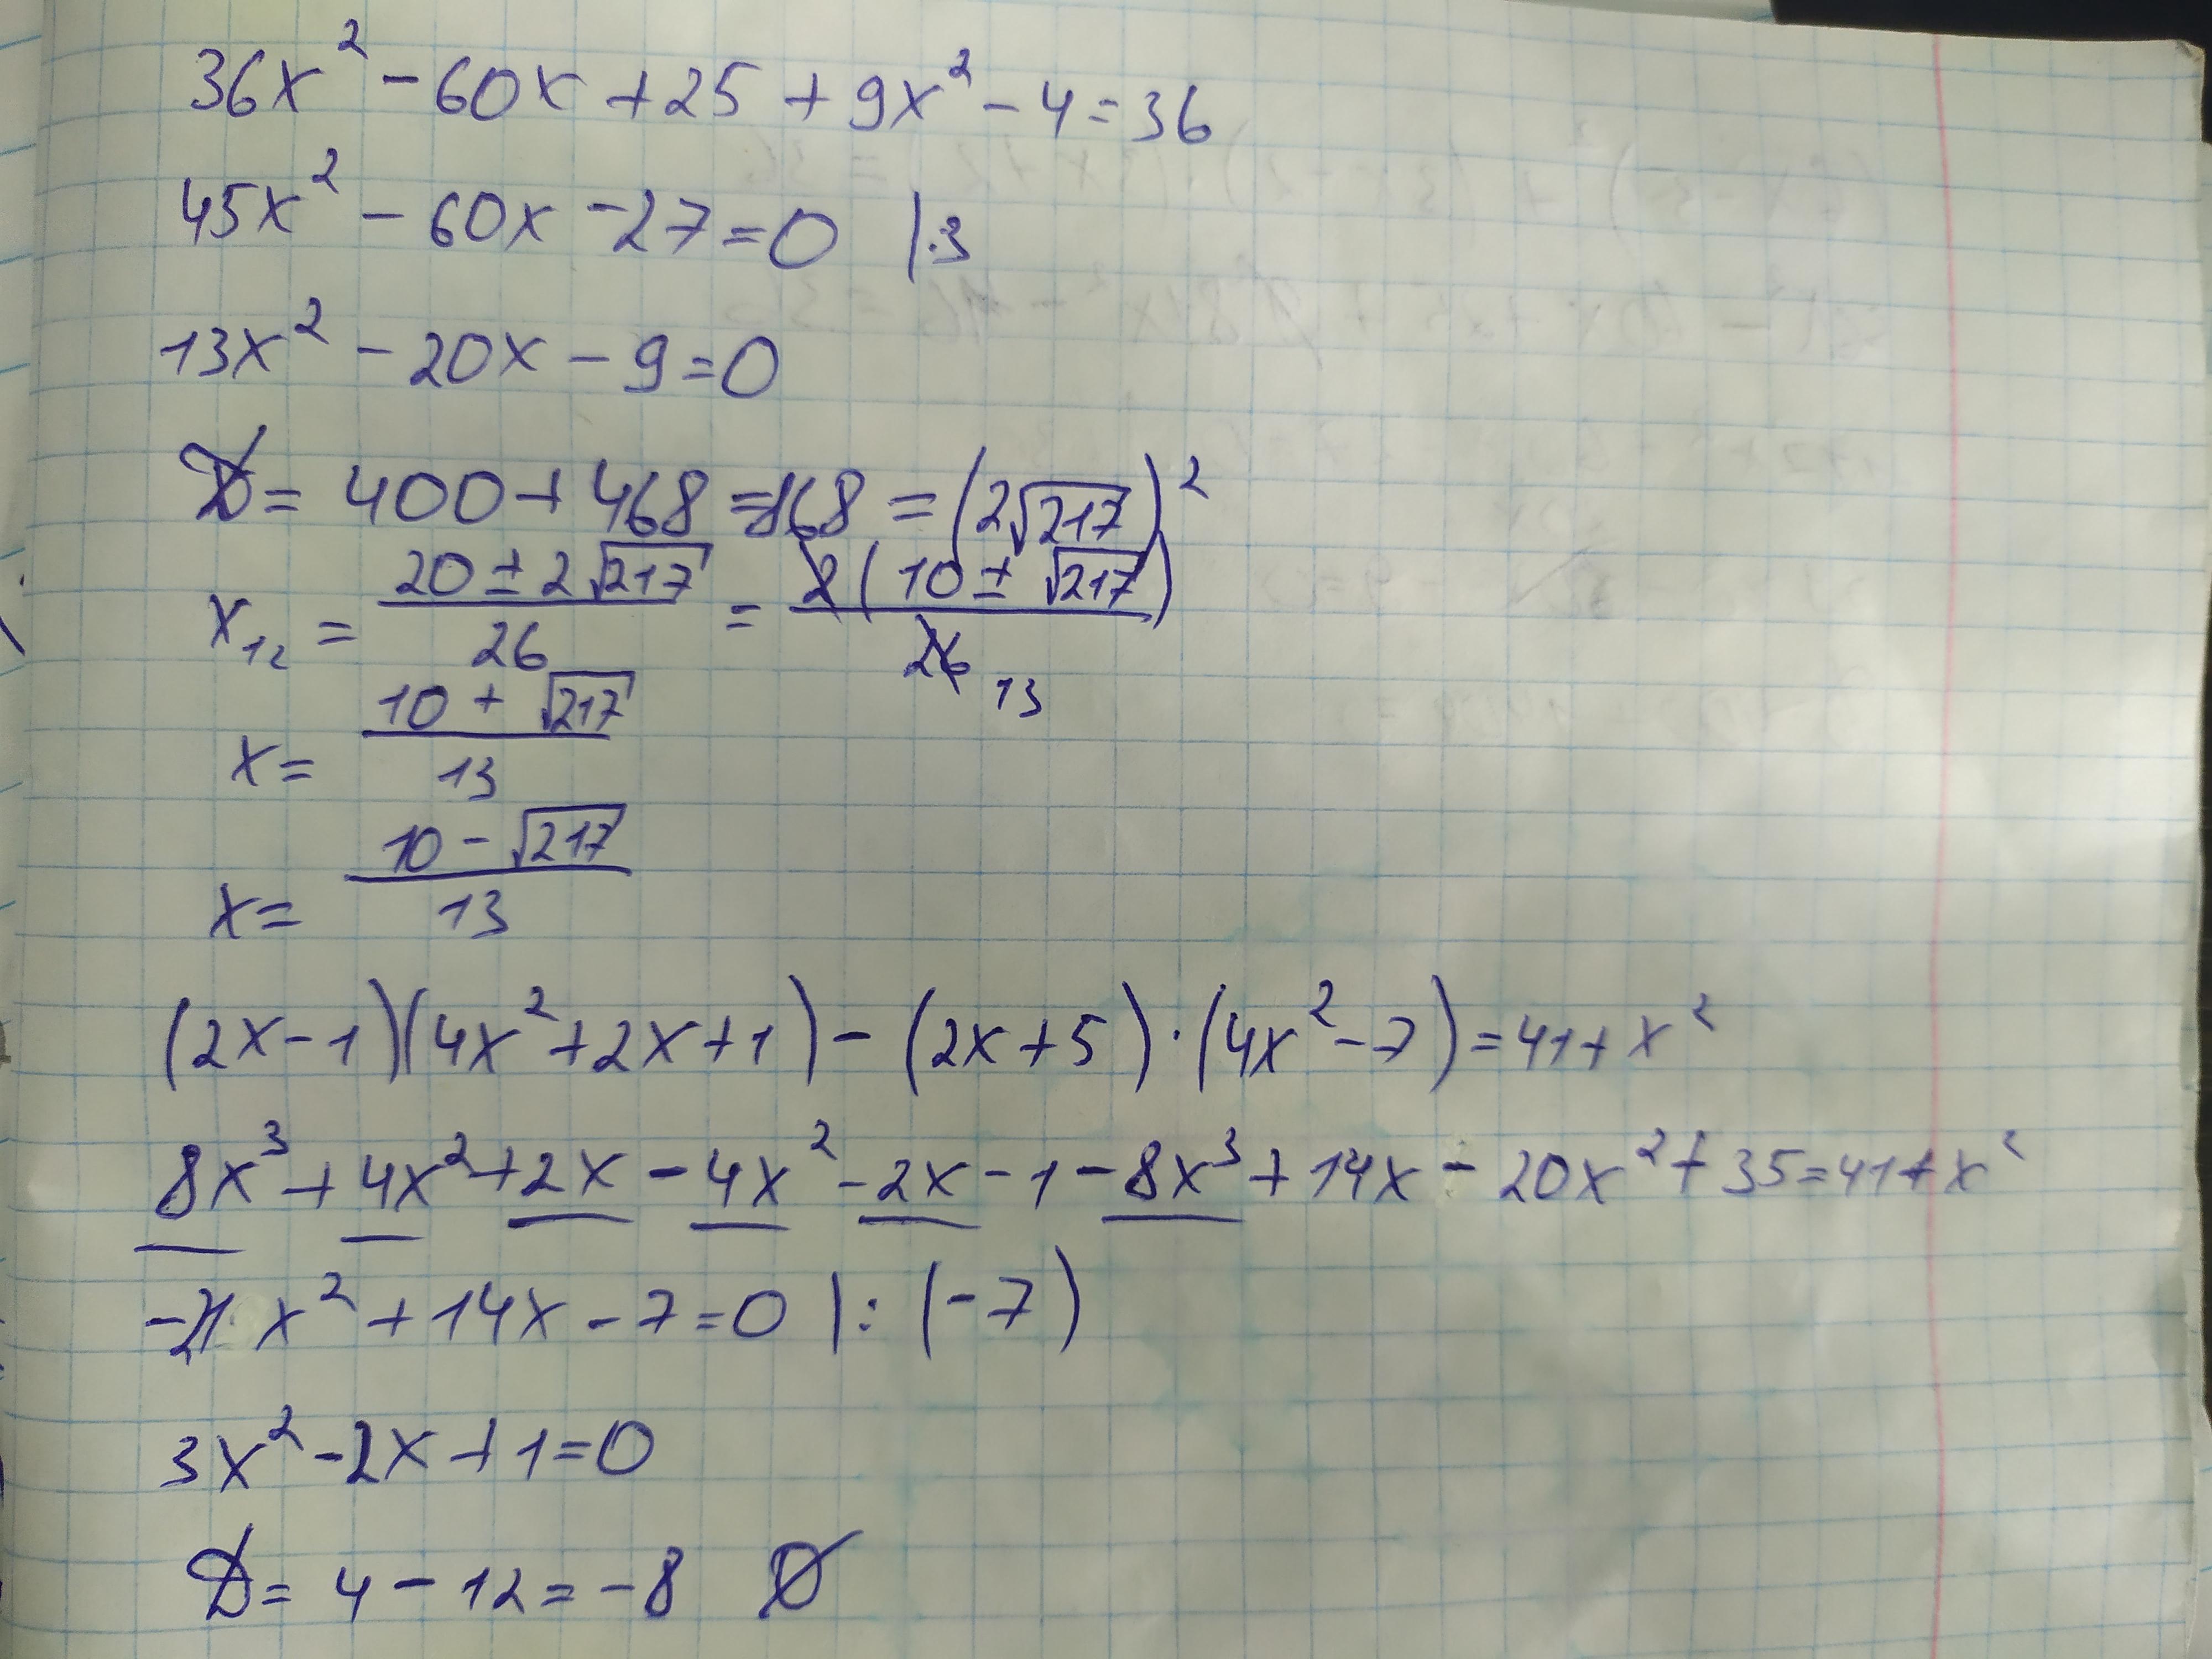 36x² - 60x + 25 + 9x² - 4 = 36
45x² - 60x - 27 = 0 |:3
13x² - 20x - 9 = 0
D = 400 + 468 = 868 = (2√217)²
x₁₂ = (20 ± 2√217)/26 = 2(10 ± √217)/26 13
x = (10 + √217)/13
x = (10 - √217)/13
(2x - 1)(4x² + 2x + 1) - (2x + 5)·(4x² - 7) = 41 + x²
8x³ + 4x² + 2x - 4x² - 2x - 1 - 8x³ + 14x - 20x² + 35 = 41 + x²
-21x² + 14x - 7 = 0 |:(-7)
3x² - 2x + 1 = 0
D = 4 - 12 = -8 Ø